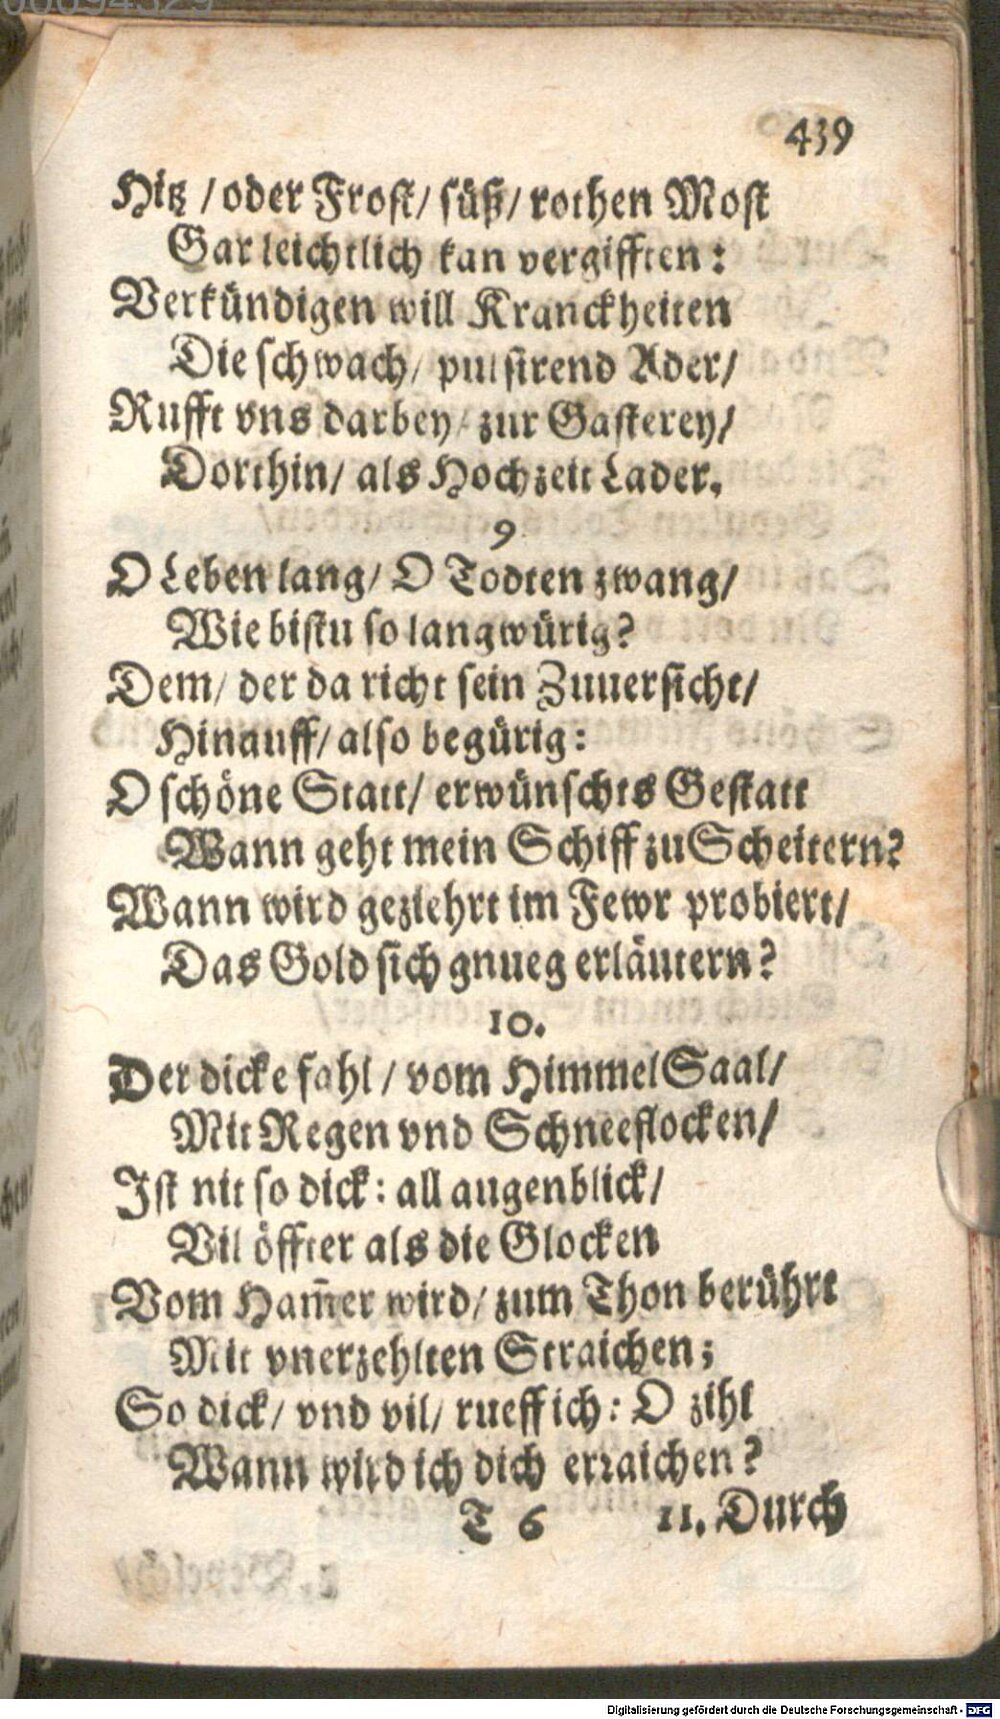 439
Hitz / oder Frost / süß / rothen Most
Gar leichtlich kan vergifften:
Verkündigen will Kranckheiten
Die schwach / pulsirend Ader /
Rufft vns darbey / zur Gasterey /
Dorthin / als Hochzeit Lader.
9
O Leben lang / O Todten zwang /
Wie bistu so langwürig?
Dem / der da richt sein Zuuersicht /
Hinauff / also begürig:
O schöne Statt / erwünschts Gestatt
Wann geht mein Schiff zu Scheitern?
Wann wird geziehrt im Fewr probiert /
Das Gold sich gnueg erläutern?
10.
Der dicke fahl / vom Himmel Saal /
Mit Regen vnd Schneeflocken /
Ist nit so dick: all augenblick /
Vil öffter als die Glocken
Vom Ham̄er wird / zum Thon berührt
Mit vnerzehlten Straichen;
So dick / vnd vil / rueff ich: O zihl
Wann wird ich dich erraichen?
T 6 11. Durch
Digitalisierung gefördert durch die Deutsche Forschungsgemeinschaft - DFG